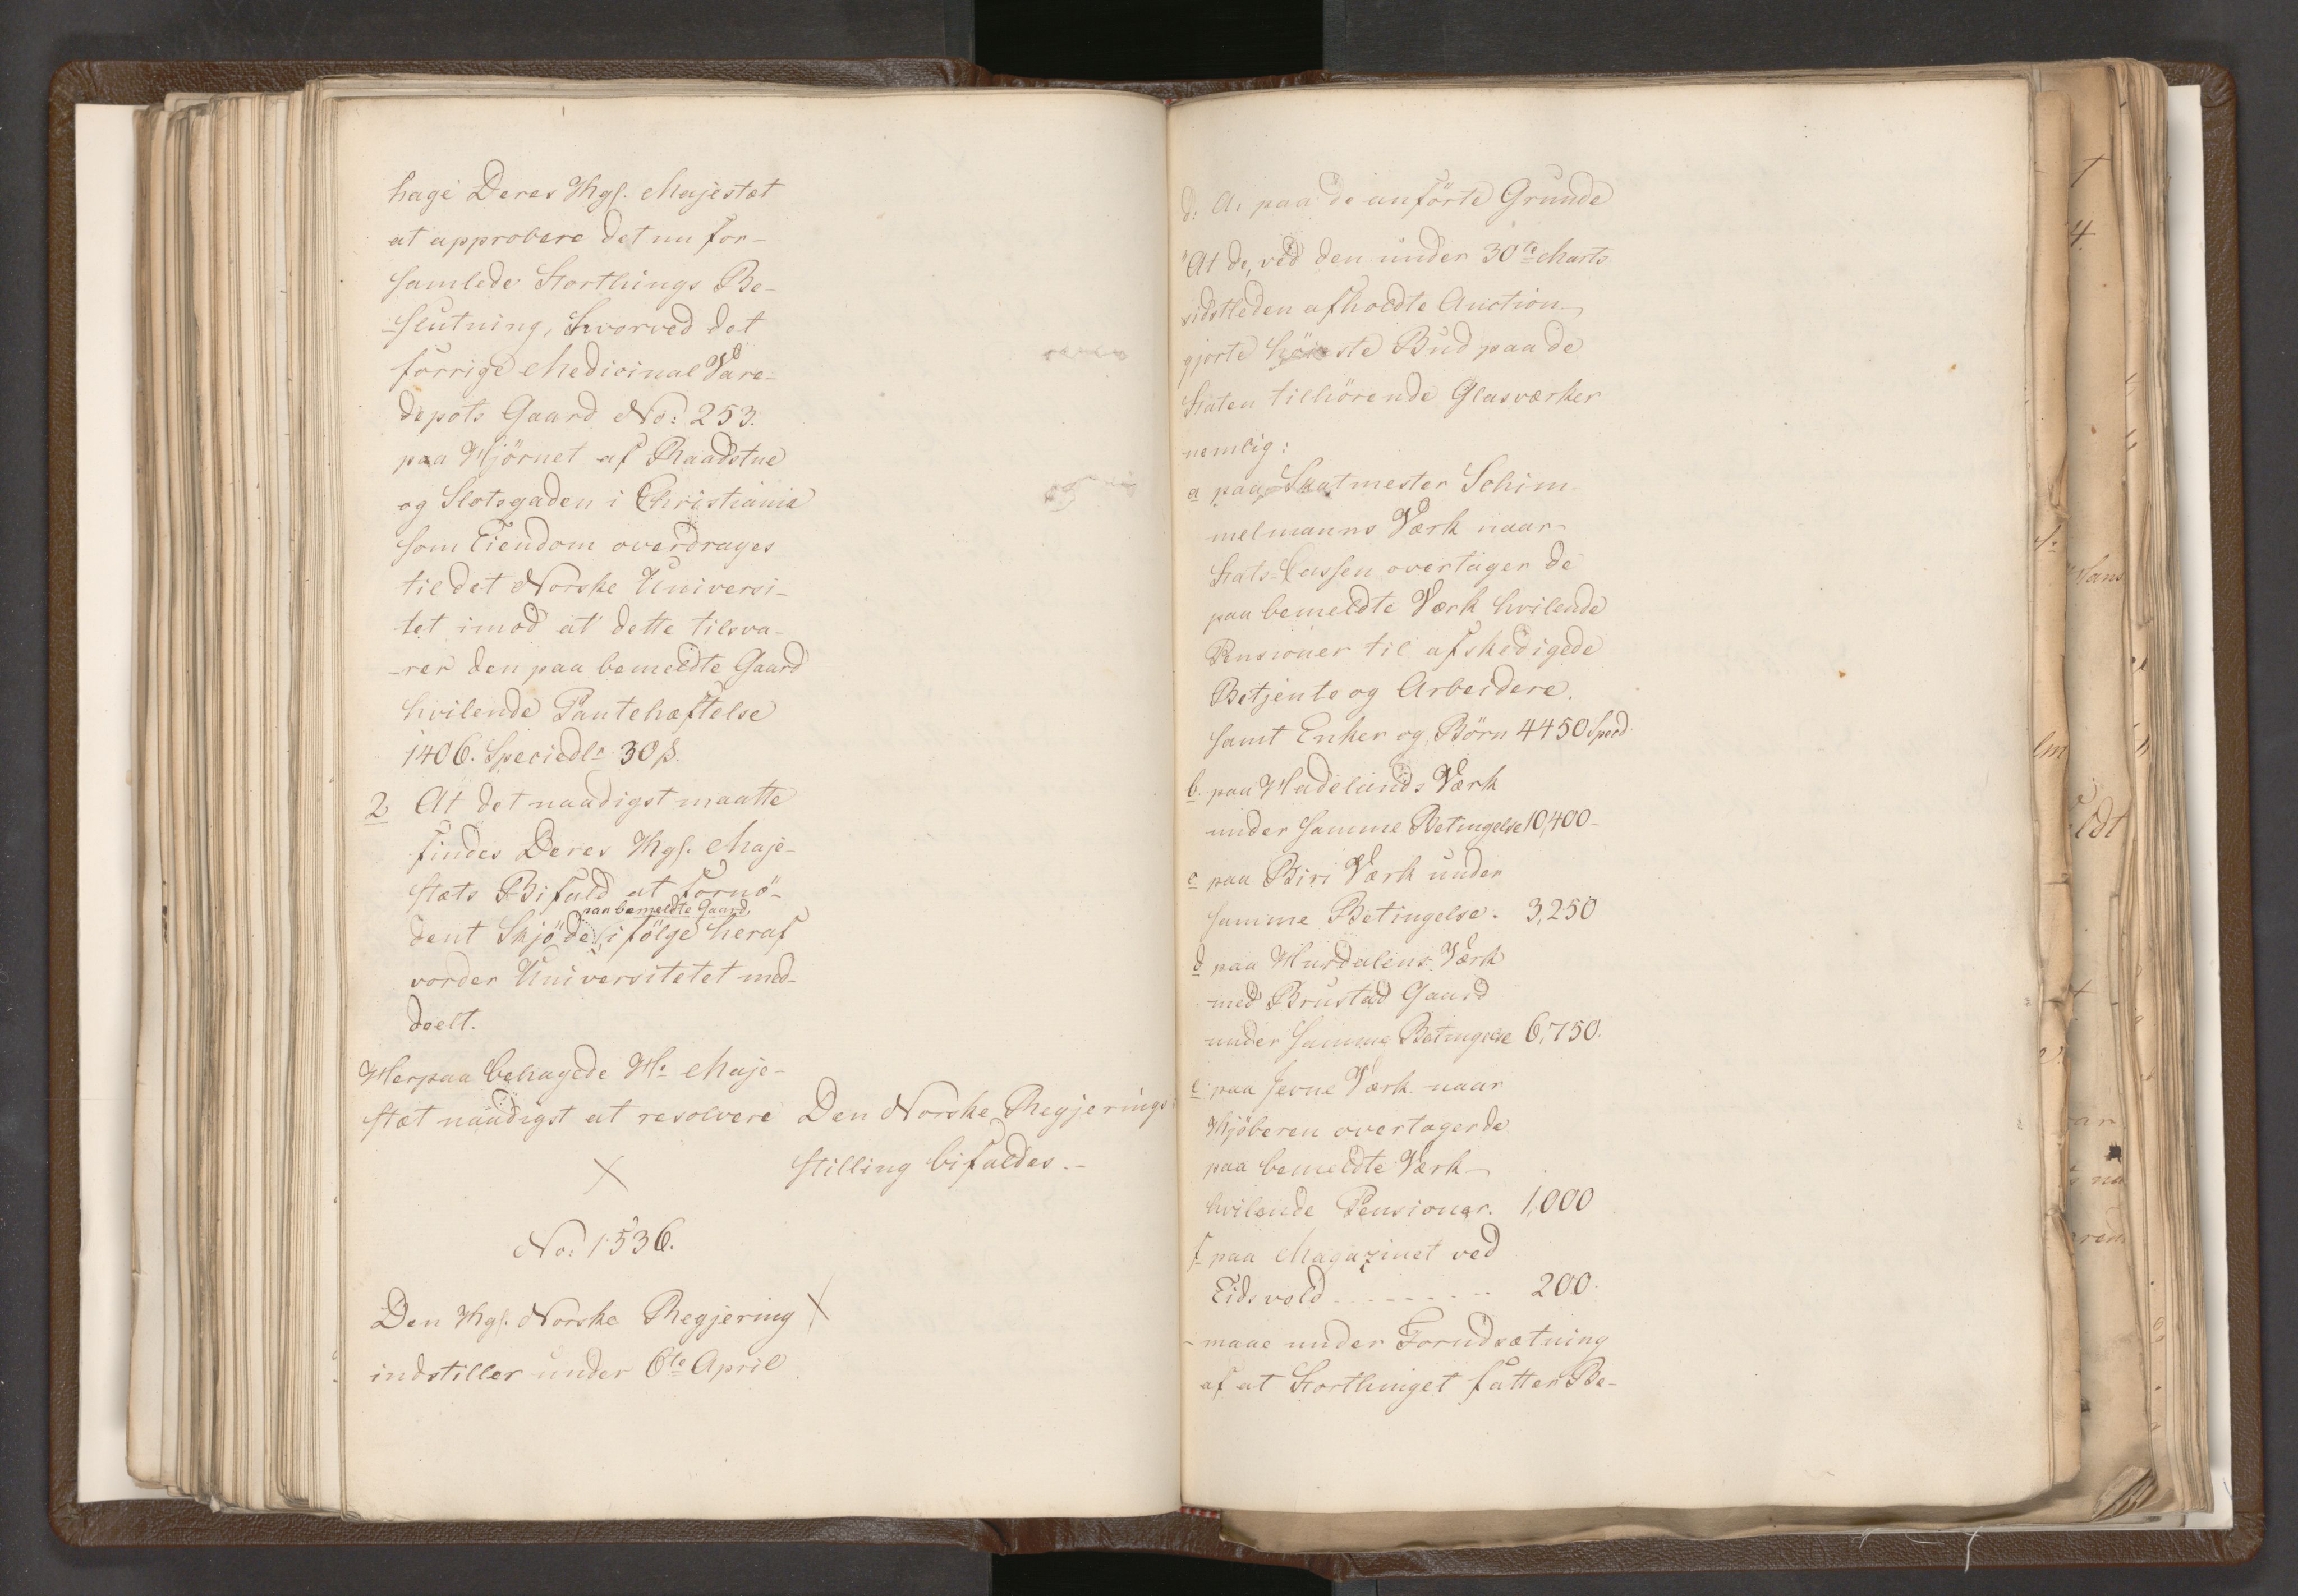 hage Deres Kgl. Majestæt
at approbere det nu for-
samlede Storthings Be-
-slutning, hvorved det
forrige Medicinal Vare-
depots Gaard No: 253.
paa Hjörnet af Raadstue
og Slotsgaden i Christiania
som Eiendom overdrages
til det Norske Universi-
tet imod at dette tilsva-
-rer den paa bemeldte Gaard
hvilende Pantehæftelse
1406. Speciedlr 30 ß.
2 At det naadigst maatte
findes Deres Kgl. Maje-
stæts Bifald at fornö-
paa bemeldte Gaard
dent Skjöde i fölge heraf
vorder Universitetet med-
deelt.
Herpaa behagede H: Maje-
stæt naadigst at resolvere
Den Norske Regjerings
Stilling bifaldes.-
No: 1536.
Den Kgl. Norske Regjering
indstiller under 6te April
d: A: paa de anförte Grunde
"At de, ved den under 30te Marts
sidstleden afholdte Auction
gjorte höieste Bud paa de
Staten tilhörende Glasværker
nemlig:
a paa Skatmester Schim-
melmanns Værk naar
Stats-Cassen overtager de
paa bemeldte Værk hvilende
Pensioner til afskedigede
Betjente og Arbeidere.
samt Enker og Börn 4450 Specd
b. paa Hadelands Værk
under samme Betingelse 10,400-
c paa Biri Værk under
samme Betingelse. 3,250
d paa Hurdalens Værk
med Brustad Gaard
under samme Betingelse 6,750.
e paa Jevne Værk naar
Kjöberen overtager de
paa bemeldte Værk
hvilende Pensioner. 1,000
f paa Magazinet ved
Eidsvold - - - - - - - 200.
-maae under Forudsætning
af at Storthinget fatter Be-